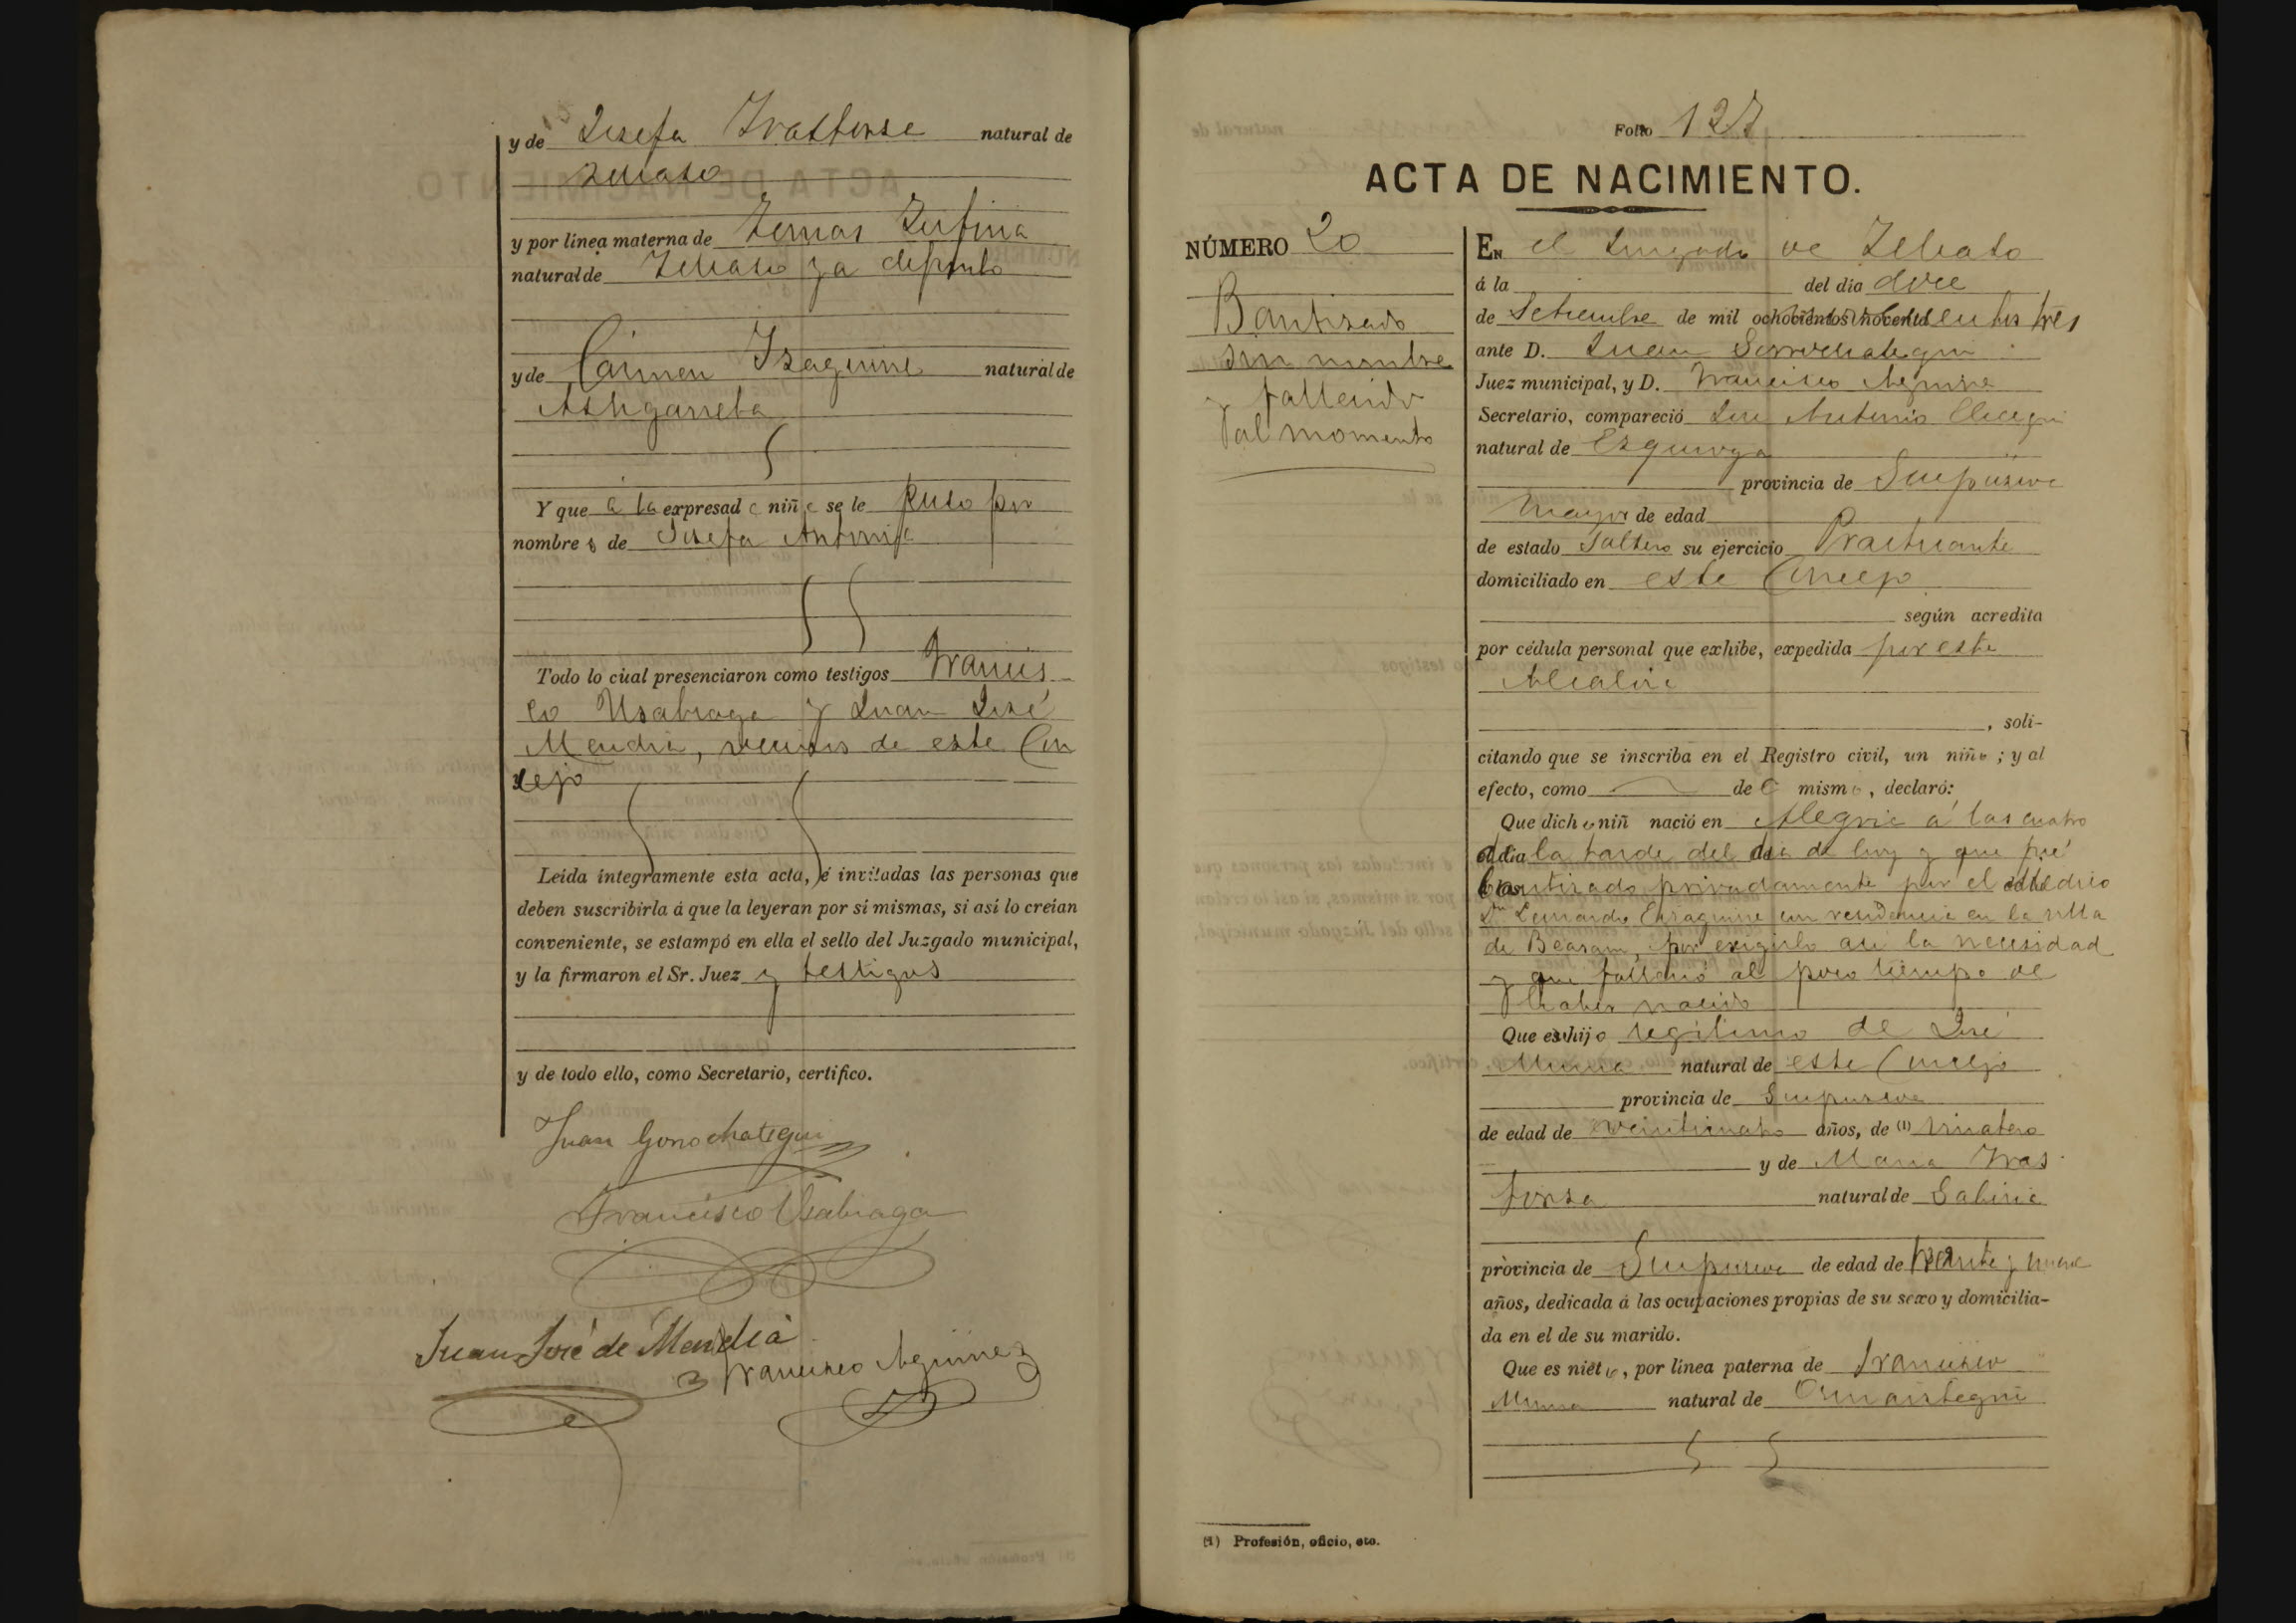 y de Josefa Irastorza natural de
Zerain
y por línea materna de Tomas
natural de ya difunto
y de Cármen Izaguirre natural de
Astigarreta
Y que á la expresad a niñ a se le puso por
nombre s de Josefa Antonia
Todo lo cual presenciaron como testigos Francis
co Usabiaga y Juan José
Mendia, vecinos de este Con
cejo
Leída íntegramente esta acta, é invitadas las personas que
deben suscribirla á que la leyeran por sí mismas, si así lo creían
conveniente, se estampó en ella el sello del Juzgado municipal,
y la firmaron el Sr. Juez y testigos
y de todo ello, como Secretario, certifico.
Juan Gorrochategui
Francisco Usabiaga
Juan José de Mendia
Francisco Aguirre
Folio 127
ACTA DE NACIMIENTO.
NÚMERO 20
Bautizado
sin nombre
y fallecido
al momento
EN el Juzgado de
á la del día doce
de Setiembre de mil tres
ante D. Juan Gorrochategui
Juez municipal, y D. Francisco Aguirre
Secretario, compareció José Antonio
natural de Ezquioga
provincia de Guipúzcoa
mayor de edad
de estado Soltero su ejercicio Practicante
domiciliado en este Concejo
según acredita
por cédula personal que exhibe, expedida por este
Alcalde
, soli-
citando que se inscriba en el Registro civil, un niño ; y al
efecto, como de l mismo , declaró:
Que dich o niñ nació en Alegria á las cuatro
de la tarde del dia de hoy y que fué
bautizado privadamente por el médico
Dn Leonardo con residencia en la villa
de Beasain, por exigirlo asi la necesidad
y que falleció al poco tiempo de
haber nacido
Que es hijo legítimo de José
Munoa natural de este Concejo
provincia de Guipuzcoa
de edad de veinticuatro años, de (1)
y de Maria Iras
torza natural de Gabiria
provincia de Guipuzcoa de edad de y nueve
años, dedicada á las ocupaciones propias de su sexo y domicilia-
da en el de su marido.
Que es niet o, por línea paterna de Francisco
Munoa natural de Ormaiztegui
(1) Profesión, oficio, etc.